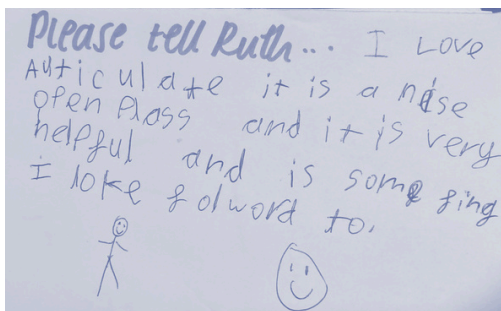 Please tell Ruth... I Love
Auticulate it is a nise
open plass and it is very
helpful and is some fing
I loke folword to.